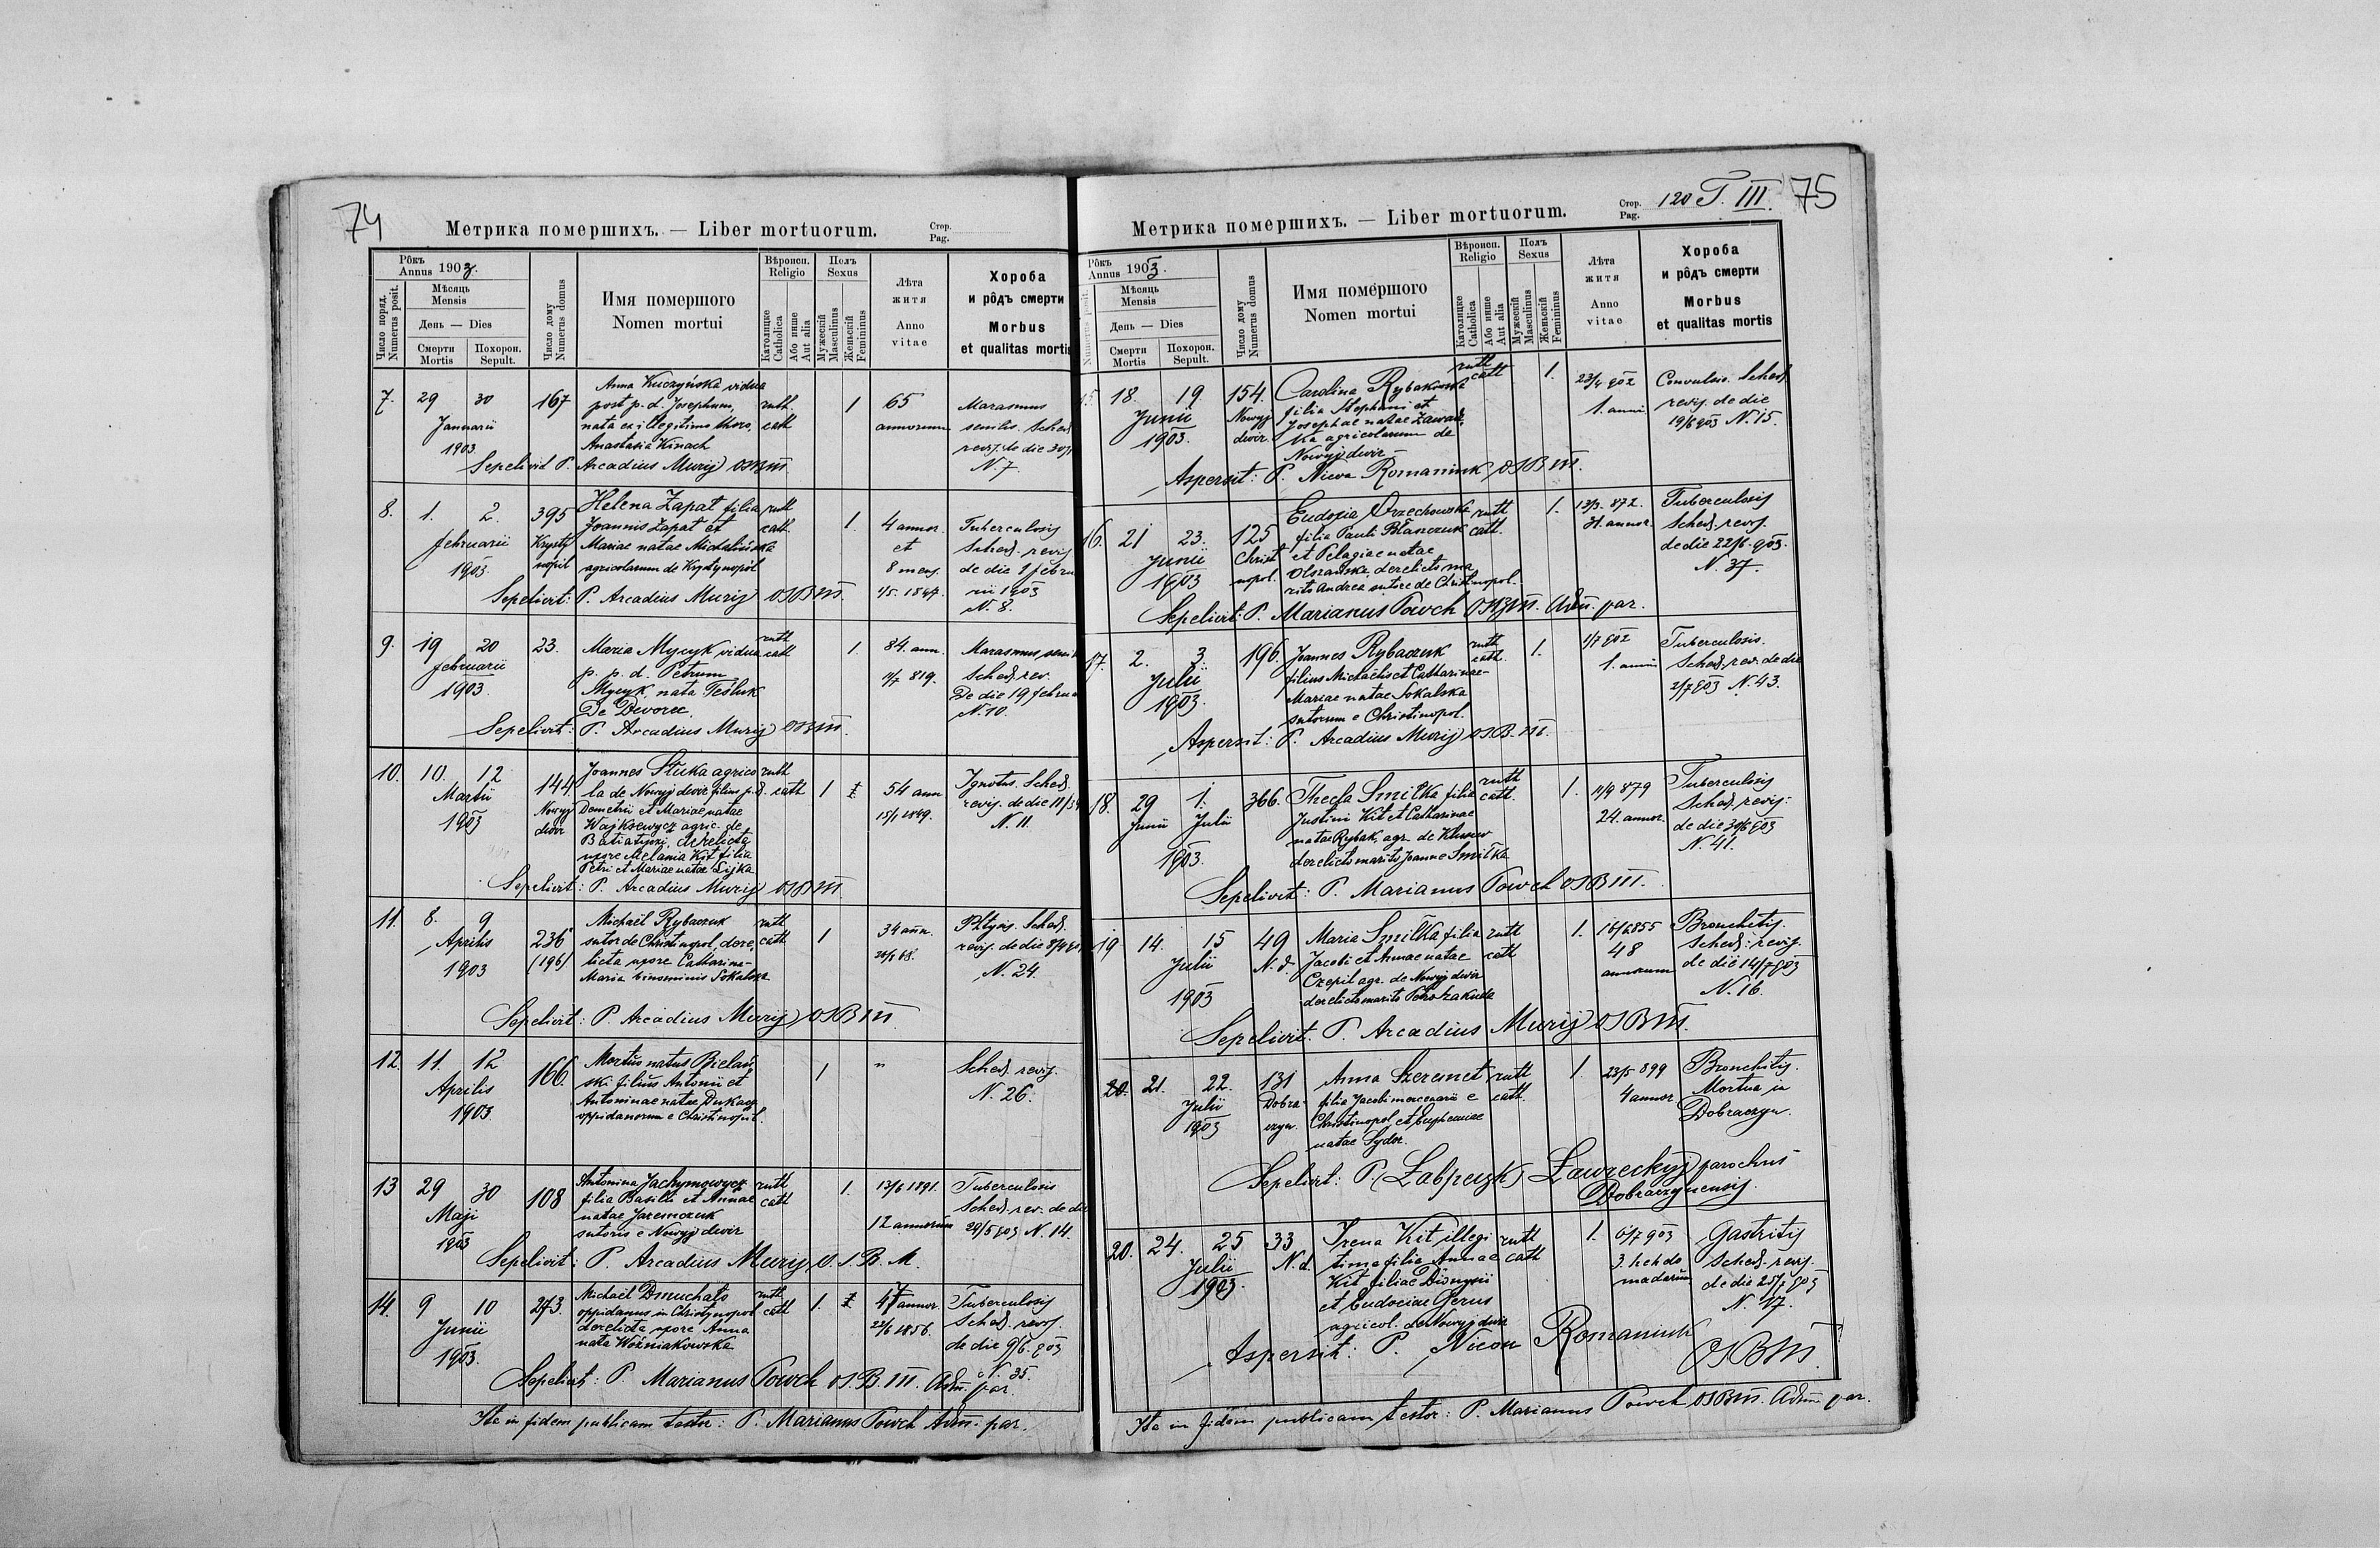 74
Метрика помершихъ. — Liber mortuorum.
Стор.
Pag.
Рôкъ
Annus 1903.
Число поряд.
Numerus posit.
Мѣсяць
Mensis
День — Dies
Смерти
Mortis
Похорон.
Sepult.
Число дому
Numerus domus
Имя помершого
Nomen mortui
Вѣроисп.
Religio
Католицке
Catholica
Або инше
Aut alia
Полъ
Sexus
Мужескій
Masculinus
Женьскій
Femininus
Лѣта
житя
Anno
vitae
Хороба
и рôдъ смерти
Morbus
et qualitas mortis
7. 29 30 167
Januarii
1903
Anna Kuczyńska vidua
post p. d. Josephum,
nata ex illegitimo thoro,
Anastasia Kinach
ruth.
cath
1
65
annorum
Marasmus
senilis. Sched.
revis. de die 30/1
N. 7.
Sepelivit P. Arcadius Muryj OSBM.
8. 1. 2. 395
februarii
1903.
Krysty
nopil
Helena Zapat filia
Joannis Zapat et
Mariae natae Michalińska
agricolarum de Krystynopol
ruth
cath.
1.
4 annor.
et
8 mens.
Tuberculosis
Sched. revis
de die 1 febru
rii 1903
N. 8.
Sepelivit: P. Arcadius Muryj OSBM.
9. 19 20 23.
februarii
1903.
Maria Mycyk vidua
p. p. d. Petrum
Mycyk, nata Teśluk
De Dworec.
ruth
cath
1.
84. ann.
819.
Marasmus senil
Sched. rev.
De die 19 februa
N. 10.
Sepelivit: P. Arcadius Muryj OSBM.
10. 10. 12 144
Martii
1903
Nowyj
dwir
Joannes Sluka agrico
la de Nowyj dwir filius p. d.
Demetrii et Mariae natae
Wajksewycz agric. de
Batiatyczi, derelicta
uxore Melania Kit filia
Petri et Mariae natae Lijka
ruth
cath
1
54 ann
15/1 1849.
Ignotus. Sched.
revis. de die 11/3
N. 11.
Sepelivit: P. Arcadius Muryj OSBM.
11. 8. 9 236
(196)
Aprilis
1903
Michaël Rybaczuk
sutor de Christinopol, dere,
licta uxore Catharina-
Maria binominis Sokalska
ruth
cath
1
34 ann.
Phtysis. Sched.
revis. de die 8/4
N. 24.
Sepelivit: P. Arcadius Muryj OSBM
12. 11. 12 166.
Aprilis
1903
Mortuus natus Bielań
ski filius Antonii et
Antoninae natae Dukacz
oppidanorum e Christinopol.
1
"
Sched. revis.
N. 26.
13 29 30 108
Maji
1903
Antonina Jachymowycz
filia Basilii et Annae
natae Jaremczuk
sutoris e Nowyj dwir
ruth
cath
1.
13/6 1891.
12 annorum
Tuberculosis
Sched. rev. de die
29/5 903 N. 14.
Sepelivit: P. Arcadius Muryj O. S. B. M.
14. 9 10 273.
Junii
1903.
Michaël Dmuchało
oppidanus in Christynopol
derelicta uxore Anna
nata Woźniakowska
ruth
cath
1.
47 annor.
22/6 1856.
Tuberculosis
Sched. revis.
de die 9/6. 903
N. 35.
Sepelivit: P. Marianus Powch O.S.B.M. Adm. par.
Ita in fidem publicam testor: P. Marianus Powch Adm: par.
75
Метрика помершихъ. — Liber mortuorum.
Стор.
Pag.
120 T. III.
Рôкъ
Annus 1903.
Numerus posit.
Мѣсяць
Mensis
День — Dies
Смерти
Mortis
Похорон.
Sepult.
Число дому
Numerus domus
Имя помершого
Nomen mortui
Вѣроисп.
Religio
Католицке
Catholica
Або инше
Aut alia
Полъ
Sexus
Мужескій
Masculinus
Женьскій
Femininus
Лѣта
житя
Anno
vitae
Хороба
и рôдъ смерти
Morbus
et qualitas mortis
15. 18. 19 154.
Junii
1903.
Nowyj
dwir.
Carolina Rybakowska
filia Stephani et
Josephae natae Zawadz,
ka agricolarum de
Nowyj dwir
ruth
cath
1.
23/4 902
1. anni
Convulsio. Sched
revis. de die
19/6 903 N. 15.
Aspersit: P. Nicon Romaniuk OSBM.
16. 21 23. 125
Junii
1903
Christ
nopol.
Eudoxia Orzechowska
filia Pauli Blanczuk
et Pelagiae natae
Olszańska, derelicto ma
rito Andrea sutore de Christinopol.
ruth
cath.
1.
13/3. 872.
31. annor.
Tuberculosis
Sched. revis.
de die 22/6. 903.
N. 37.
Sepelivit: P. Marianus Powch OSBM. Adm. par.
17. 2. 3. 196.
Julii
1903.
Joannes Rybaczuk
filius Michaëlis et Catharinae-
Mariae natae Sokalska
sutorum e Christinopol.
ruth
cath.
1.
1/7 902
1. anni
Tuberculosis.
Sched. rev. de die
2/7 903 N. 43.
Aspersit: P. Arcadius Muryj OSB.M.
18. 29 1. 366.
Junii Julii
1903.
Thecla Smilka filia
Justini Kit et Catharinae
natae Rybak, agr. de Klusiw
derelicto marito Joanne Smilka
ruth
cath.
1.
879
24. annor.
Tuberculosis
Sched. revis:
de die 30/6 903
N. 41.
Sepelivit: P. Marianus Powch OSBM.
19. 14. 15 49
Julii
1903
N. d.
Maria Smilka filia
Jacobi et Annae natae
Czepil agr. de Nowyj dwir
derelicto marito
ruth
cath
1.
16/6 855
48
annorum
Bronchitis.
Sched: revis.
de die 14/7 903
N. 16.
Sepelivit. P. Arcadius Muryj OSBM.
20. 21. 22. 131
Julii
1903
Dobra-
czyn.
Anna Szeremet
filia Jacobi mercenarii e
Christinopol et Euphemiae
natae Sydor.
ruth
cath.
1.
23/5 899
4 annor
Bronchitis.
Mortua in
Dobraczyn.
Sepelivit: P. Ławreckyj parochus
Dobraczynensis.
20. 24. 25 33
Julii
1903.
N. d.
Irena Kit illegi
tima filia Annae
Kit filiae Dionysii
et Eudociae Gerus
agricol. de Nowyj dwir
ruth
cath
1.
6/7 903
3. hebdo
madarum
Gastritis
Sched. revis.
de die 25/7 903
N. 17.
Aspersit: P. Nicon Romaniuk
OSBM.
Ita in fidem publicam testor: P. Marianus Powch OSBM. Adm. par.